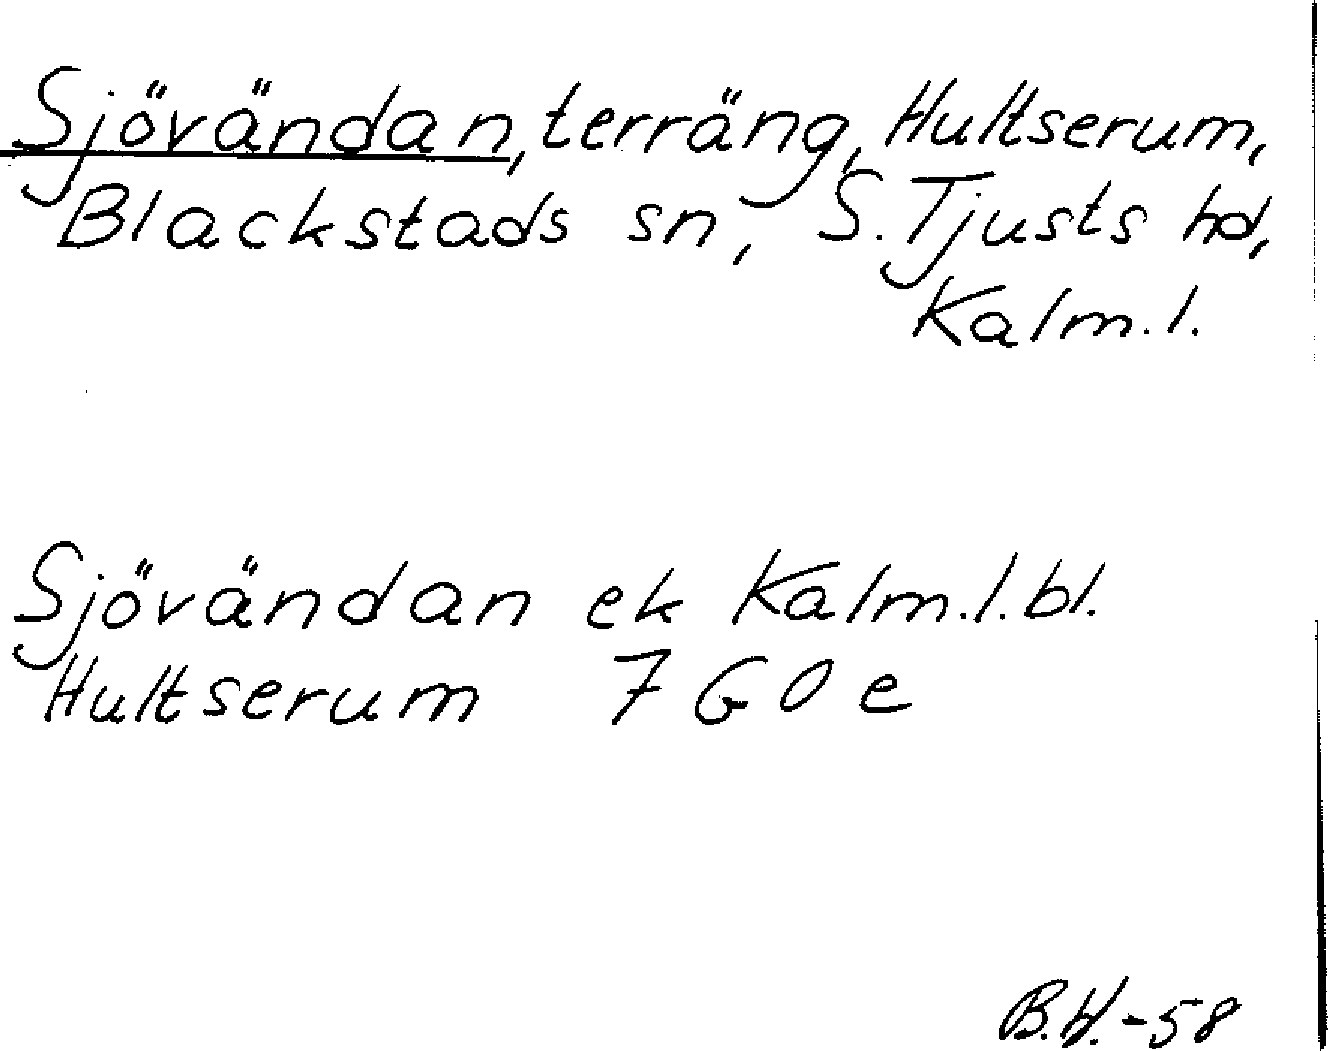 Sjövändan, terräng, Hultserum,
Blackstads sn, S. Tjusts hd,
Kalm. l.
Sjövändan ek Kalm. l. bl.
Hultserum 7 G 0 e
B.H.-58